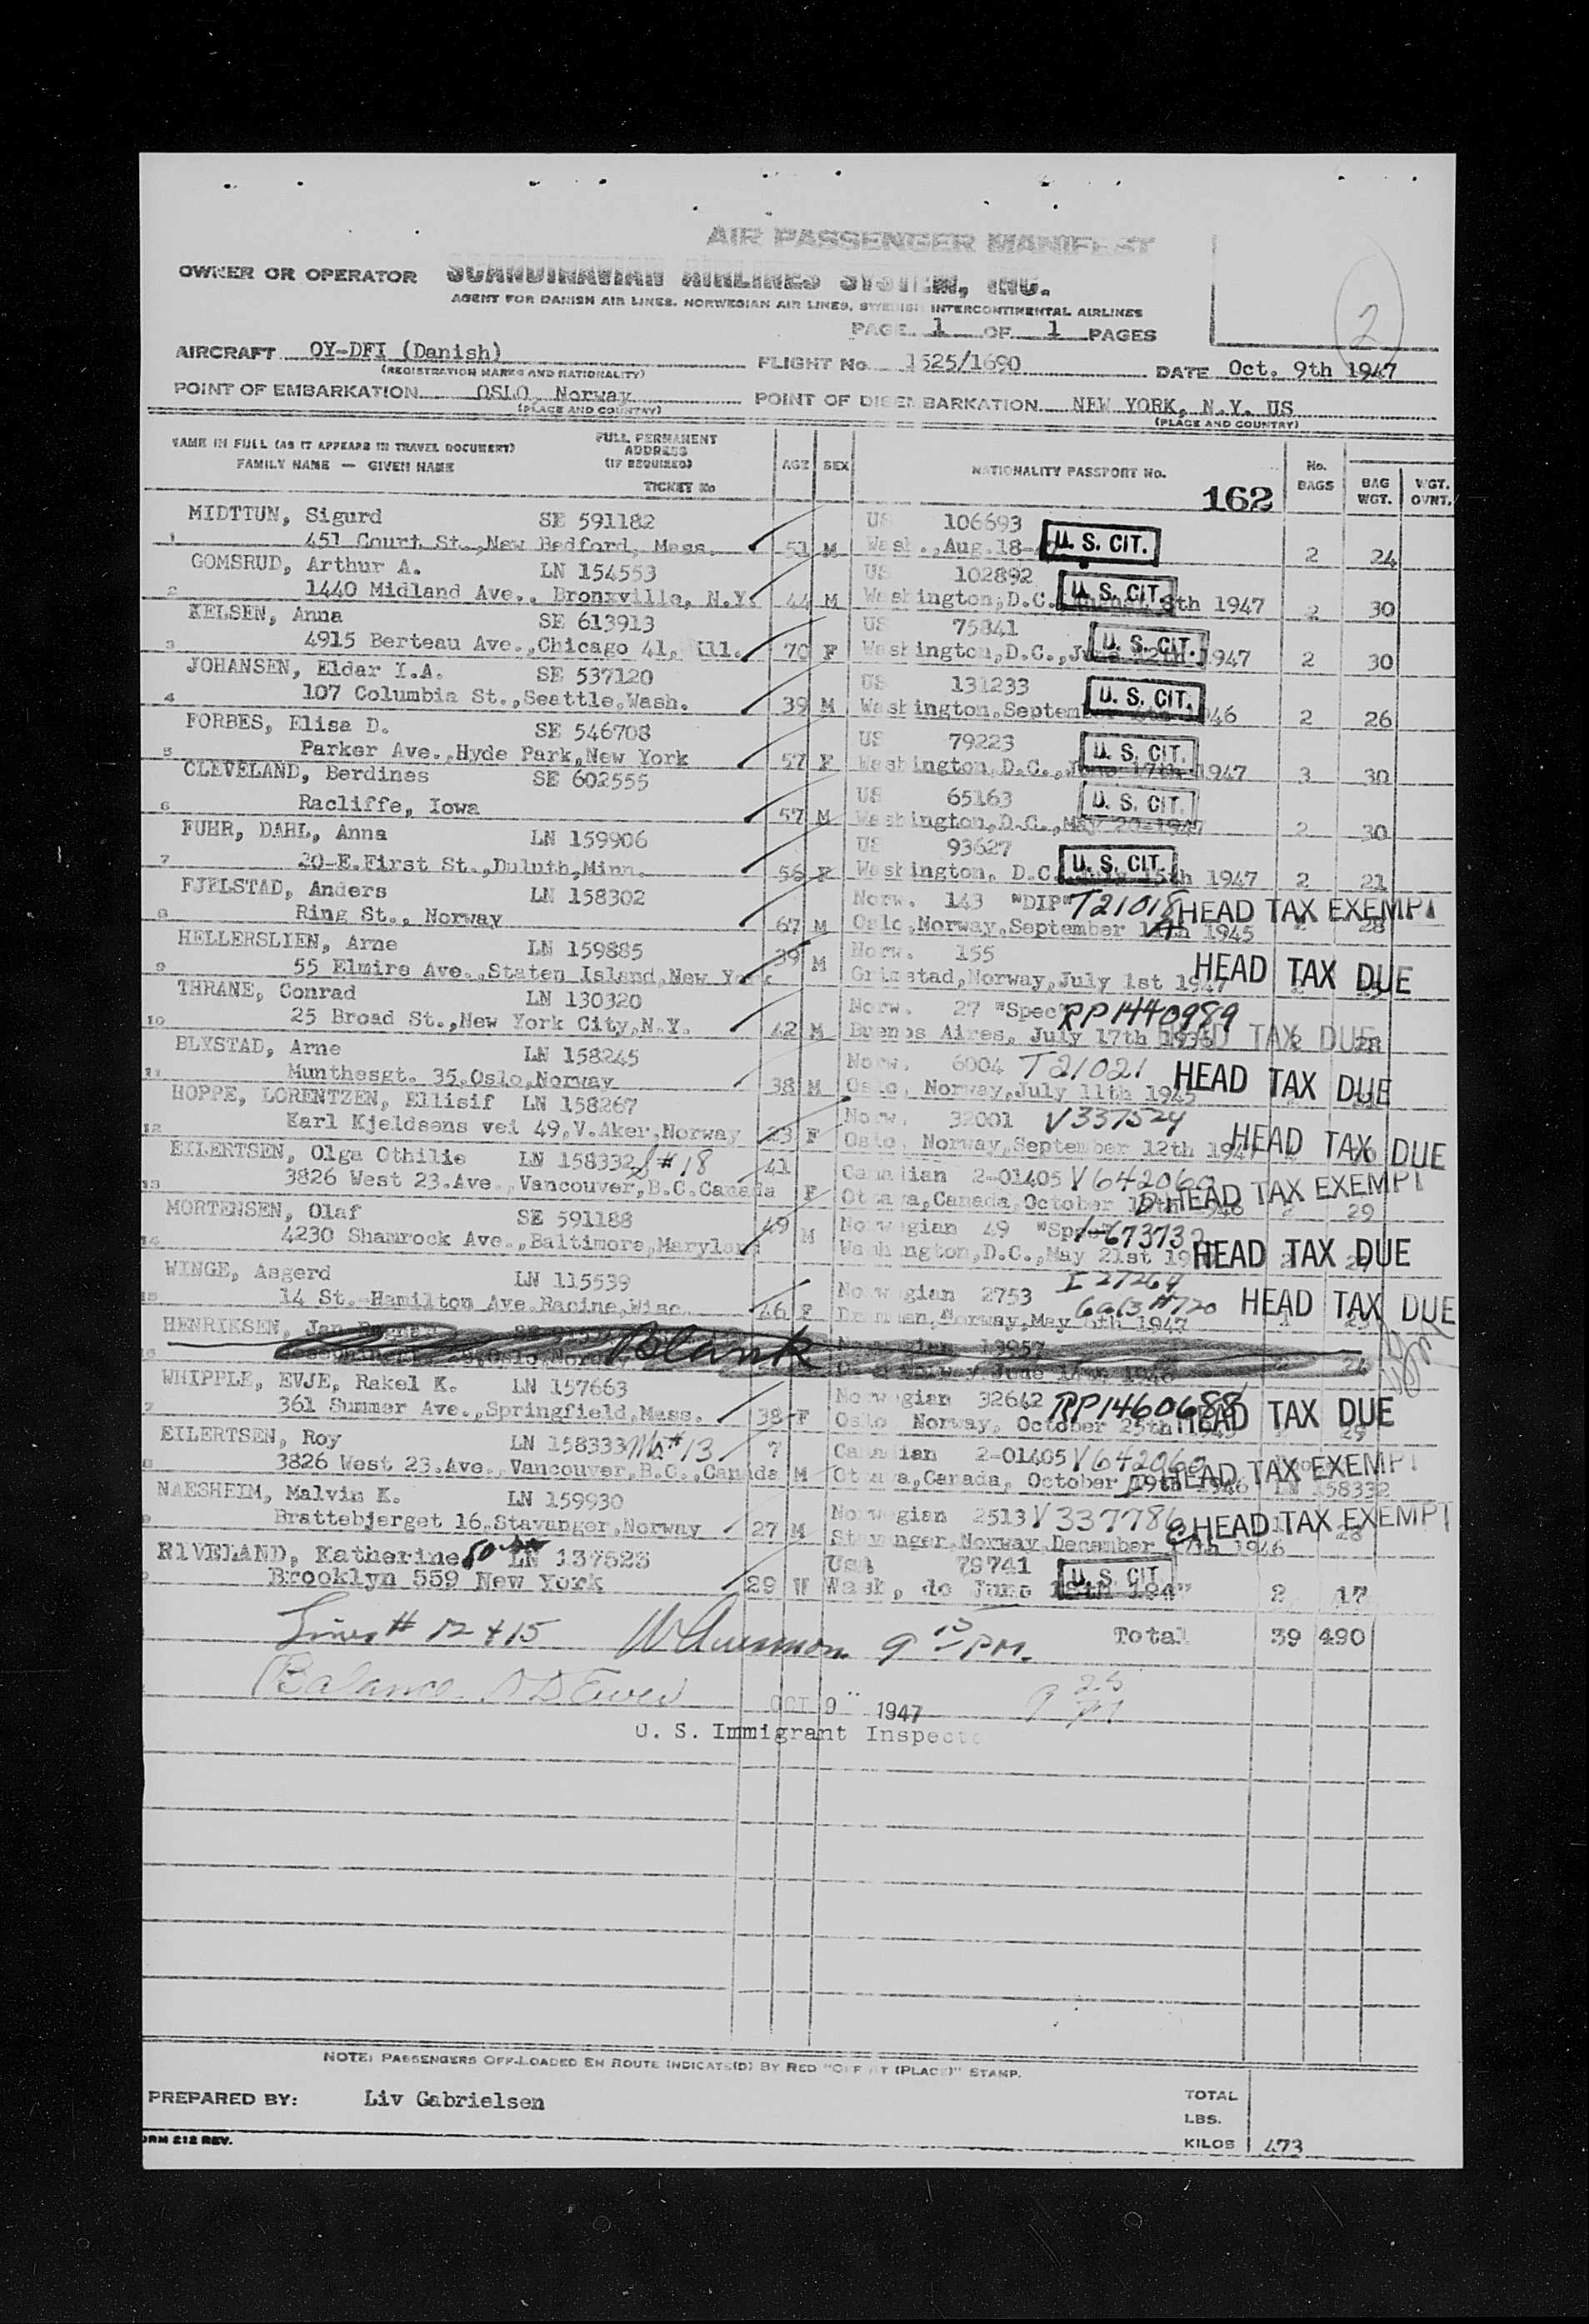 AIR PASSENGER MANIFEST
2
OWNER OR OPERATOR SCANDINAVIAN AIRLINES SYSTEM, INC.
AGENT FOR DANISH AIR LINES, NORWEGIAN AIR LINES, SWEDISH INTERCONTINENTAL AIRLINES
PAGE 1 OF 1 PAGES
AIRCRAFT OY-DFI (Danish) FLIGHT No 1525/1690 DATE Oct. 9th 1947
(REGISTRATION MARKS AND NATIONALITY)
POINT OF EMBARKATION OSLO, Norway POINT OF DISEMBARKATION NEW YORK, N.Y. US
(PLACE AND COUNTRY) (PLACE AND COUNTRY)
NAME IN FULL (AS IT APPEARS IN TRAVEL DOCUMENT) FULL PERMANENT ADDRESS (IF REQUIRED)
FAMILY NAME — GIVEN NAME AGE SEX NATIONALITY PASSPORT No. No. BAGS BAG WGT. WGT. OVNT.
TICKET No 162
MIDTTUN, Sigurd SE 591182 US 106693
1 451 Court St.,New Bedford, Mass. 51 M Wash.,Aug.18- U. S. CIT. 2 24
GOMSRUD, Arthur A. LN 154553 US 102892
2 1440 Midland Ave., Bronxville, N.Y. 44 M Washington,D.C. U. S. CIT. 8th 1947 2 30
KELSEN, Anna SE 613913 US 75841
3 4915 Berteau Ave.,Chicago 41, Ill. 70 F Washington,D.C.,June 12th 1947 U. S. CIT. 2 30
JOHANSEN, Eldar I.A. SE 537120 US 131233
4 107 Columbia St.,Seattle,Wash. 39 M Washington,September 1946 U. S. CIT. 2 26
FORBES, Elisa D. SE 546708 US 79223
5 Parker Ave.,Hyde Park,New York 57 F Washington,D.C.,June 17th 1947 U. S. CIT. 3 30
CLEVELAND, Berdines SE 602555 US 65163
6 Racliffe, Iowa 57 M Washington,D.C.,MAY 20-1947 U. S. CIT. 2 30
FUHR, DAHL, Anna LN 159906 US 93627
7 20-E.First St.,Duluth,Minn. 56 F Washington, D.C. July 15th 1947 U. S. CIT. 2 21
FJELSTAD, Anders LN 158302 Norw. 143 "DIP" T21018 HEAD TAX EXEMPT
8 Ring St., Norway 67 M Oslo,Norway,September 11th 1945 2 28
HELLERSLIEN, Arne LN 159885 39 Norw. 155
9 55 Elmire Ave.,Staten Island,New York M Grimstad,Norway,July 1st 1947 HEAD TAX DUE
THRANE, Conrad LN 130320 Norw. 27 "Spec" RP1440989
10 25 Broad St.,New York City,N.Y. 42 M Buenos Aires, July 17th HEAD TAX DUE
BLYSTAD, Arne LN 158245 Norw. 6004 T21021
11 Munthesgt. 35,Oslo,Norway 38 M Oslo, Norway,July 11th 1945 HEAD TAX DUE
HOPPE, LORENTZEN, Ellisif LN 158267 Norw. 32001 V337524
12 Karl Kjeldsens vei 49,V.Aker,Norway 23 F Oslo Norway,September 12th 1947 HEAD TAX DUE
EILERTSEN, Olga Othilie LN 158332 #18 41 Canadian 2-01405 V642060
13 3826 West 23.Ave., Vancouver,B.C.Canada F Ottawa,Canada,October 19th 1946 HEAD TAX EXEMPT 2 29
MORTENSEN, Olaf SE 591188 49 Norwegian 49 "Spec" 673732
14 4230 Shamrock Ave.,Baltimore,Maryland M Washington,D.C.,May 21st HEAD TAX DUE
WINGE, Asgerd LN 115539 Norwegian 2753 I 27269
15 14 St.-Hamilton Ave.Racine,Wisc. 46 F Drammen, Norway,May 6th 1947 #720 HEAD TAX DUE
HENRIKSEN, Jan Blank Norwegian 13957
16 Oslo,Norway Oslo Norway June 14th 1946 24
WHIPPLE, EVJE, Rakel K. LN 157663 Norwegian 32642 RP1460688
7 361 Summer Ave.,Springfield,Mass. 38 F Oslo Norway, October 25th HEAD TAX DUE 29
EILERTSEN, Roy LN 158333 #13 7 Canadian 2-01405 V642060
8 3826 West 23.Ave., Vancouver,B.C.,Canada M Ottawa,Canada, October 19th 1946 HEAD TAX EXEMPT LN 158332
NAESHEIM, Malvin K. LN 159930 Norwegian 2513 V337786
9 Brattebjerget 16,Stavanger,Norway 27 M Stavanger,Norway December 17th 1946 HEAD TAX EXEMPT
RIVELAND, Katherine LN 137523 USA 79741
Brooklyn 559 New York 29 W Wash, dc June 18th 1947 U. S. CIT 2 17
Lines # 12 & 15 9 15 PM. Total 39 490
Balance 9 25 PM
OCT 9 1947
U. S. Immigrant Inspecto
NOTE: PASSENGERS OFF-LOADED EN ROUTE INDICATE(D) BY RED "OFF AT (PLACE)" STAMP.
PREPARED BY: Liv Gabrielsen TOTAL
LBS.
ORM 212 REV. KILOS 473